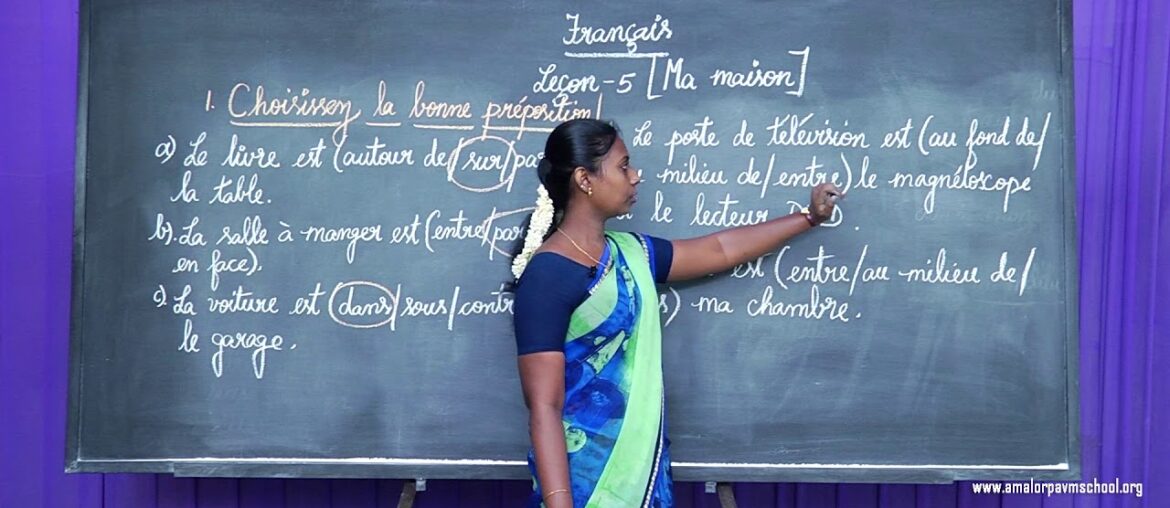 Français
Leçon-5 [Ma maison]
1. Choisissez la bonne préposition!
a) Le livre est (autour de/sur/par
la table.
b). La salle à manger est (entre/par
en face).
c). La voiture est (dans/sous/contr
le garage.
Le poste de télévision est (au fond de/
milieu de/entre) le magnétoscope
le lecteur D.
est (entre/au milieu de/
) ma chambre.
www.amalorpavmschool.org